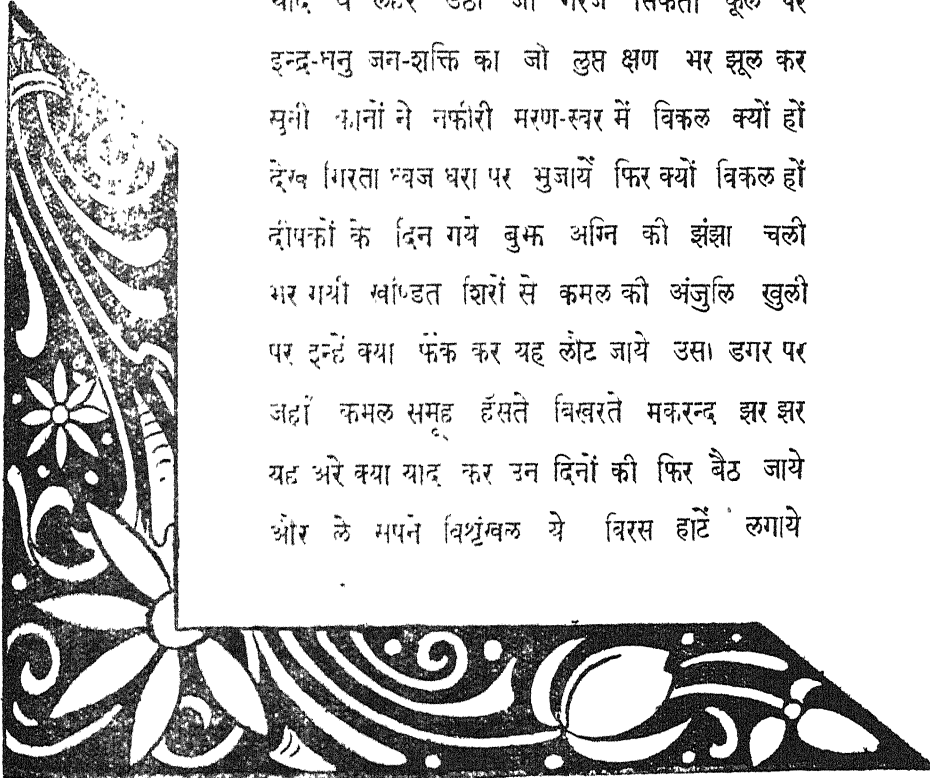 याद ये लहर उठी जो गरज सिकता कूल पर
इन्द्र-धनु जन-शक्ति का जो लुप्त क्षण भर झूल कर
सुनी कानों ने नफीरी मरण-स्वर में विकल क्यों हों
देख गिरता ध्वज धरा पर भुजायें फिर क्यों विकल हों
दीपकों के दिन गये बुझ अग्नि की झंझा चली
भर गयी खण्डित शिरों से कमल की अंजुलि खुली
पर इन्हें क्या फेंक कर यह लौट जाये उसी डगर पर
जहाँ कमल समूह हँसते बिखरते मकरन्द झर झर
यह अरे क्या याद कर उन दिनों की फिर बैठ जाये
और ले सपने विशृंखल ये विरस हाटें लगाये